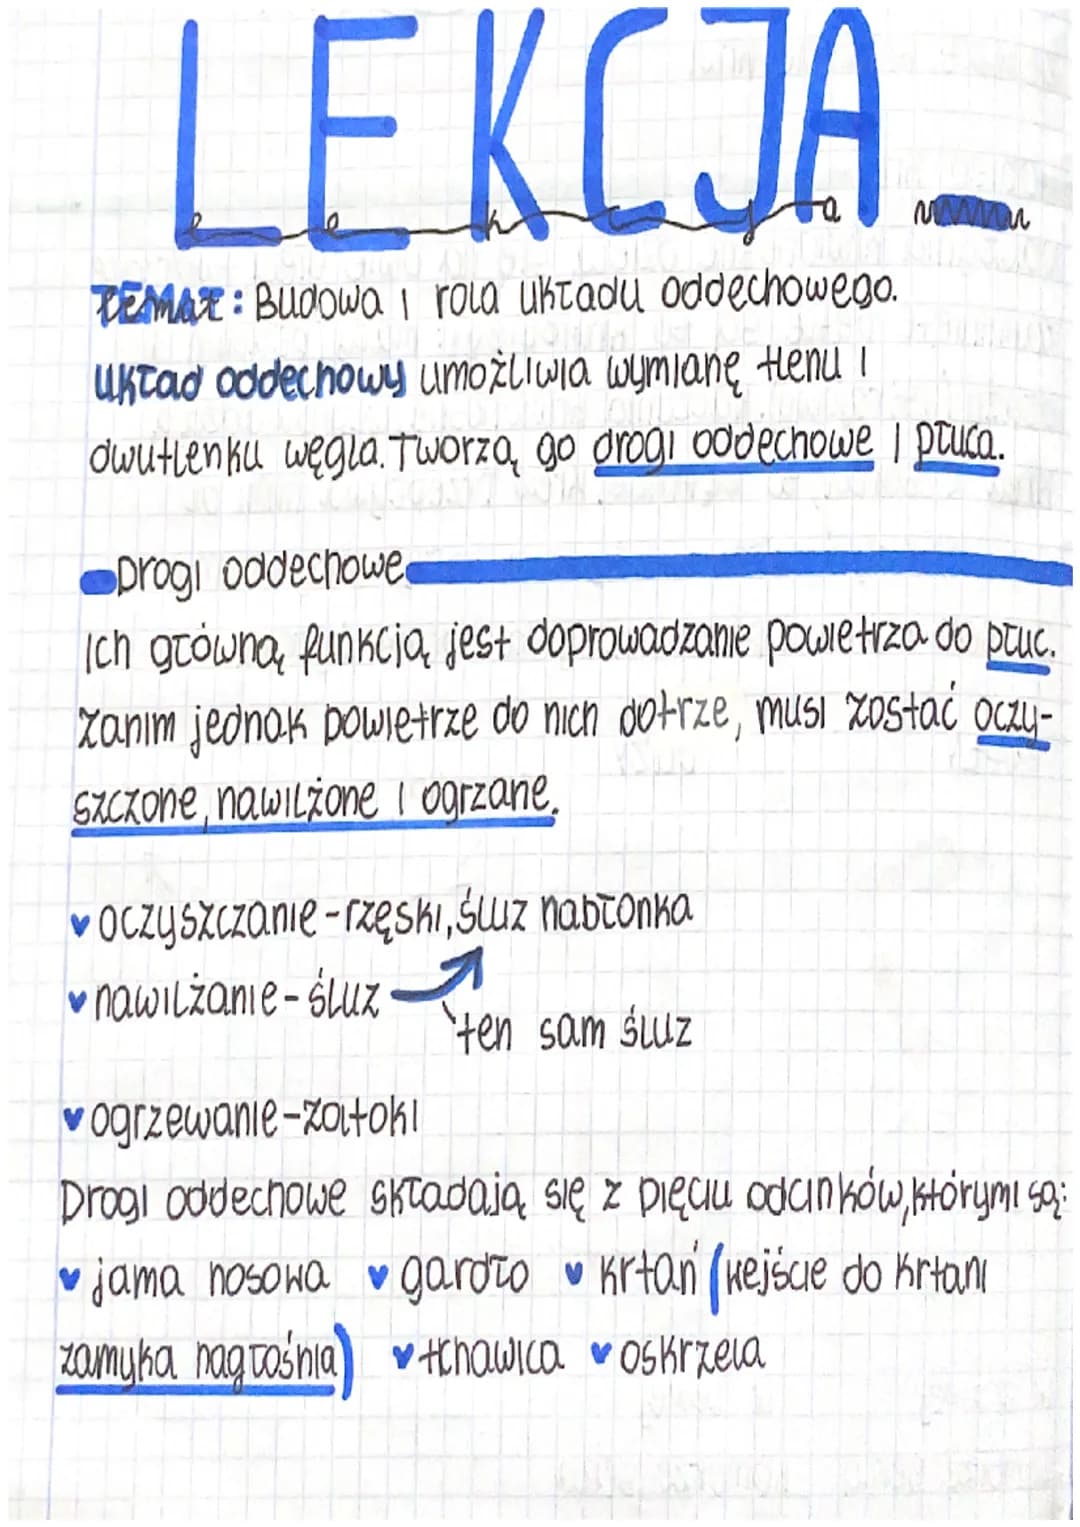 LEKCJA
lekcja
TEMAT: Budowa i rola układu oddechowego.
układ oddechowy umożliwia wymianę tlenu i
dwutlenku węgla. Tworzą go drogi oddechowe i płuca.
Drogi oddechowe
Ich główną funkcją jest doprowadzanie powietrza do płuc.
Zanim jednak powietrze do nich dotrze, musi zostać oczy-
szczone, nawilżone i ogrzane.
oczyszczanie - rzęski, śluz nabłonka
nawilżanie - śluz
ten sam śluz
ogrzewanie - zatoki
Drogi oddechowe składają się z pięciu odcinków, którymi są:
jama nosowa gardło krtań (wejście do krtani
zamyka nagłośnia) tchawica oskrzela